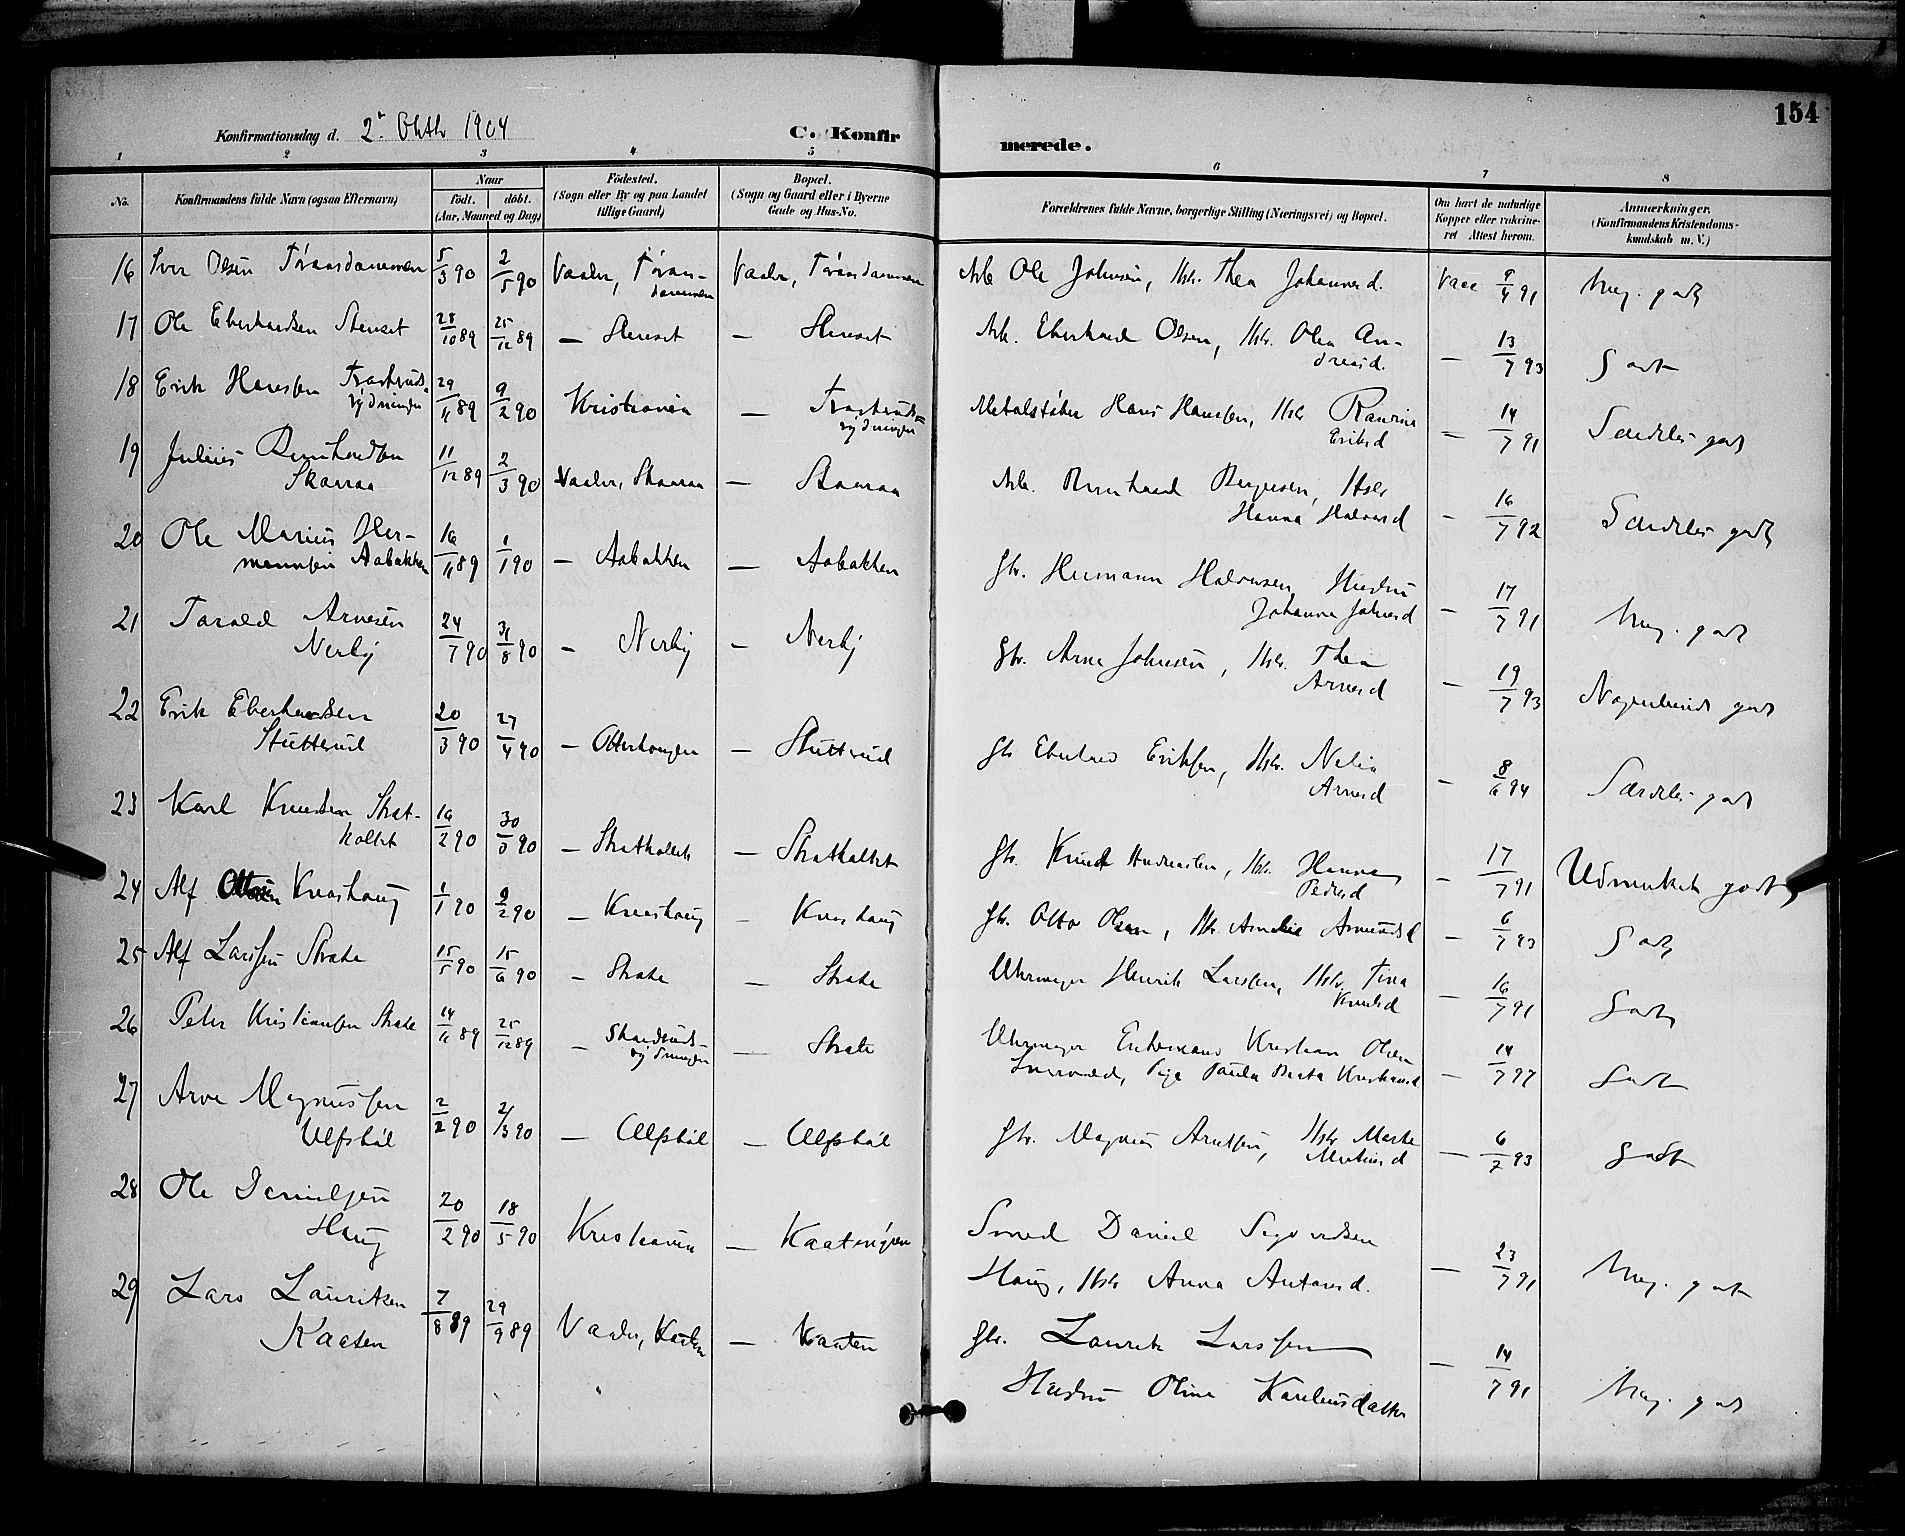 154
Konfirmationsdag d. 2. Oktb 1904
C. Konfirmerede.
1 2 3 4 5 6 7 8
No.
Konfirmandens fulde Navn (ogsaa Efternavn)
Naar
født. døbt.
(Aar, Maaned og Dag)
Fødested.
(Sogn eller By og paa Landet
tillige Gaard)
Bopæl.
(Sogn og Gaard eller i Byerne
Gade og Hus-No.
Forældrenes fulde Navne, borgerlige Stilling (Næringsvei) og Bopæl.
Om havt de naturlige
Kopper eller vakcine-
ret Attest herom.
Anmærkninger.
(Konfirmandens Kristendoms-
kundskab m. V.)
16 Iver Olsen 5/3 90 2/5 90 Vaaler, Vaaler, Arb. Ole Johnsen, Hstr. Thea Johannesd. Vacc 9/4 91 Meg. godt
17 Ole Eberhardsen Stenset 28/10 89 25/12 89 — Stenset — Stenset Arb. Eberhard Olsen, Hstr. Olea An-
dreasd. — 13/7 93 Godt
18 Erik Hansen 29/11 89 9/2 90 Kristiania — Metalstøber Hans Hansen, Hstr
Eriksd — 14/7 91 Særdeles godt
19 Julius Bernhardsen
Skaaraa 11/12 89 2/3 90 Vaaler, Skaaraa — Skaaraa Arb. Bernhard Bergersen, Hstr
Hanna Halvorsd — 16/7 92 Særdeles godt
20 Ole Marius Her-
mansen Aabakken 16/11 89 1/1 90 — Aabakken — Aabakken Gbr. Hermann Halvorsen Hustru
Johanne Johnsd — 17/7 91 Meg. godt
21 Tarald Arnesen
Nerby 24/7 90 31/8 90 — Nerby — Nerby Gbr. Arne Johnsen, Hstr. Thea
Arnesd — 19/7 93 Nogenlunde godt
22 Erik Eberhardsen
Stutterud 20/3 90 27/4 90 — Otterhaugen — Stutterud Gbr Eberhard Eriksen, Hstr. Nelia
Arnesd — 8/6 94 Særdeles godt
23 Karl Knudsen Strat-
koltet 16/2 90 30/3 90 — Stratkoltet — Stratkoltet Gbr. Knud Andreasen, Hstr. Hanna
Pedersd — 17/7 91 Udmerket godt
24 Alf Ottesen Knashaug 1/1 90 9/2 90 — Knashaug — Knashaug Gbr. Otto Olsen, Hstr. Amalie Amundsd — 6/7 93 Godt
25 Alf Larssen Strate 15/5 90 15/6 90 — Strate — Strate Uhrmager Henrik Larssen, Hstr. Tina
Knudsd — 16/7 91 Godt
26 Peter Kristiansen Strate 14/11 89 25/12 89 — — Strate Uhrmager Enkemand Kristian Olsen
Pige Paula Beata Kristiansd — 14/7 97 Godt
27 Arne Magnussen
Ulfsbøl 2/2 90 2/3 90 — Ulfsbøl — Ulfsbøl Gbr. Magnus Arnesen, Hstr Marte
Martinsd — 6/7 93 Godt
28 Ole Danielsen
Haug 20/2 90 18/5 90 Kristiania — Smed Daniel Sigvardsen
Haug, Hstr Anna Antonsd. — 23/7 91 Meg. godt
29 Lars Lauritsen
Kaaten 7/8 89 29/9 89 Vaaler, Kaaten — Kaaten Gbr. Laurits Larssen
Hustru Oline Kareliusdatter — 14/7 91 Meg. godt